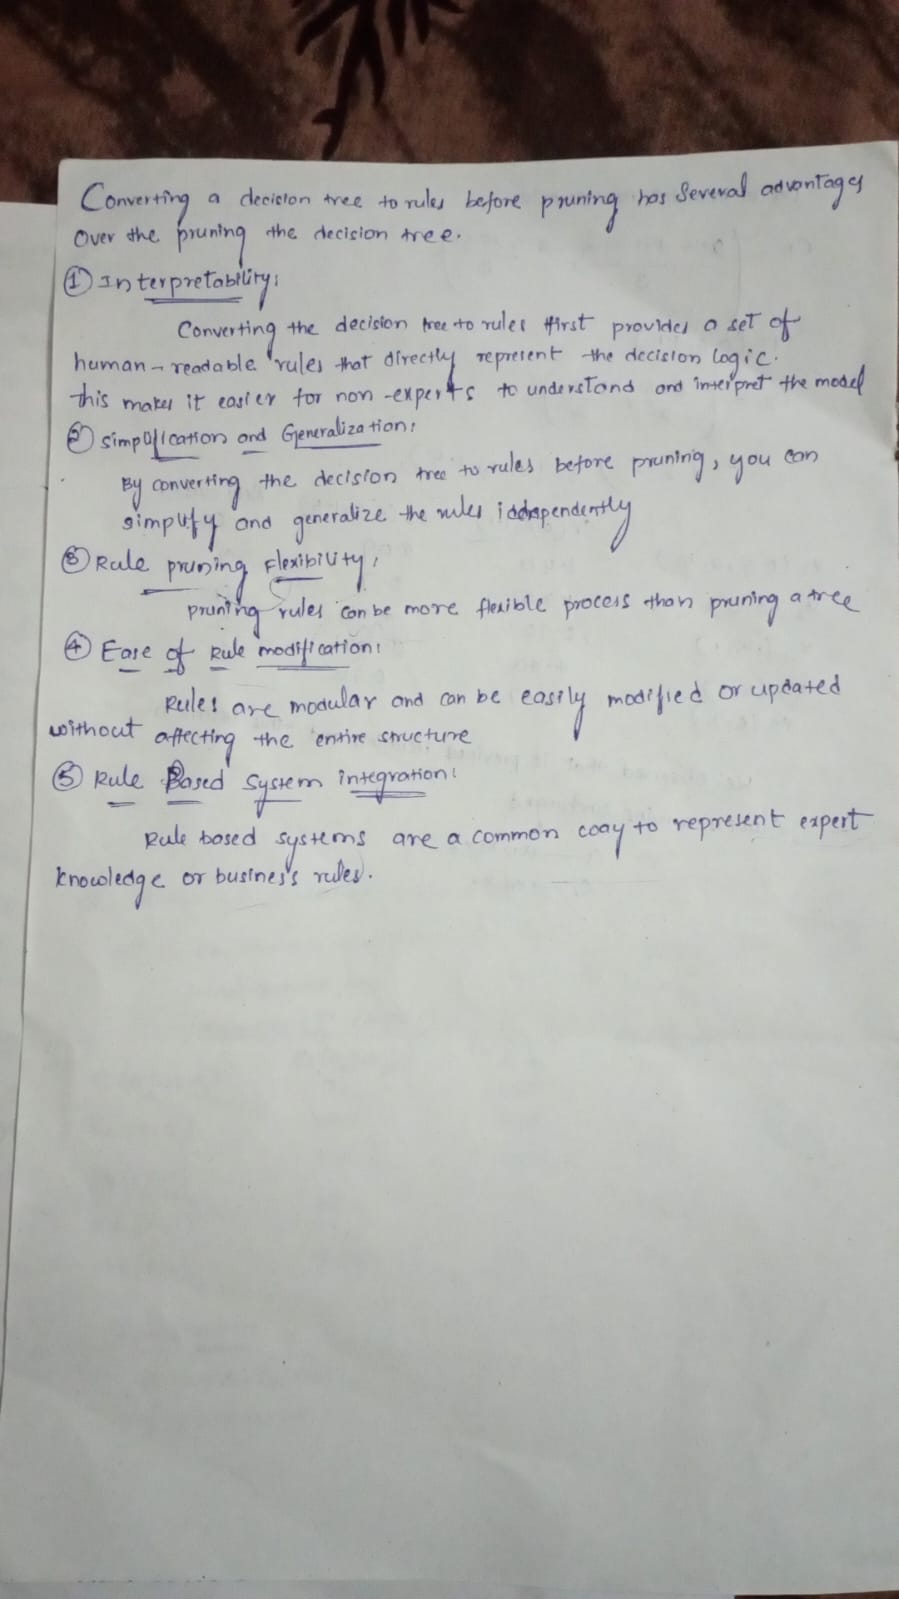 Converting a decision tree to rules before pruning has Several advantages
Over the pruning the decision tree.
① Interpretability:
Converting the decision tree to rules first provides a set of
human-readable rules that directly represent the decision logic.
this makes it easier for non-experts to understand and interpret the model
② Simplification and Generalization:
By converting the decision tree to rules before pruning, you can
simplify and generalize the rules idependently
③ Rule pruning Flexibility:
pruning rules can be more flexible process than pruning a tree
④ Ease of Rule modification:
Rules are modular and can be easily modified or updated
without affecting the entire structure
⑤ Rule Based System integration:
Rule based systems are a common way to represent expert
knowledge or business rules.